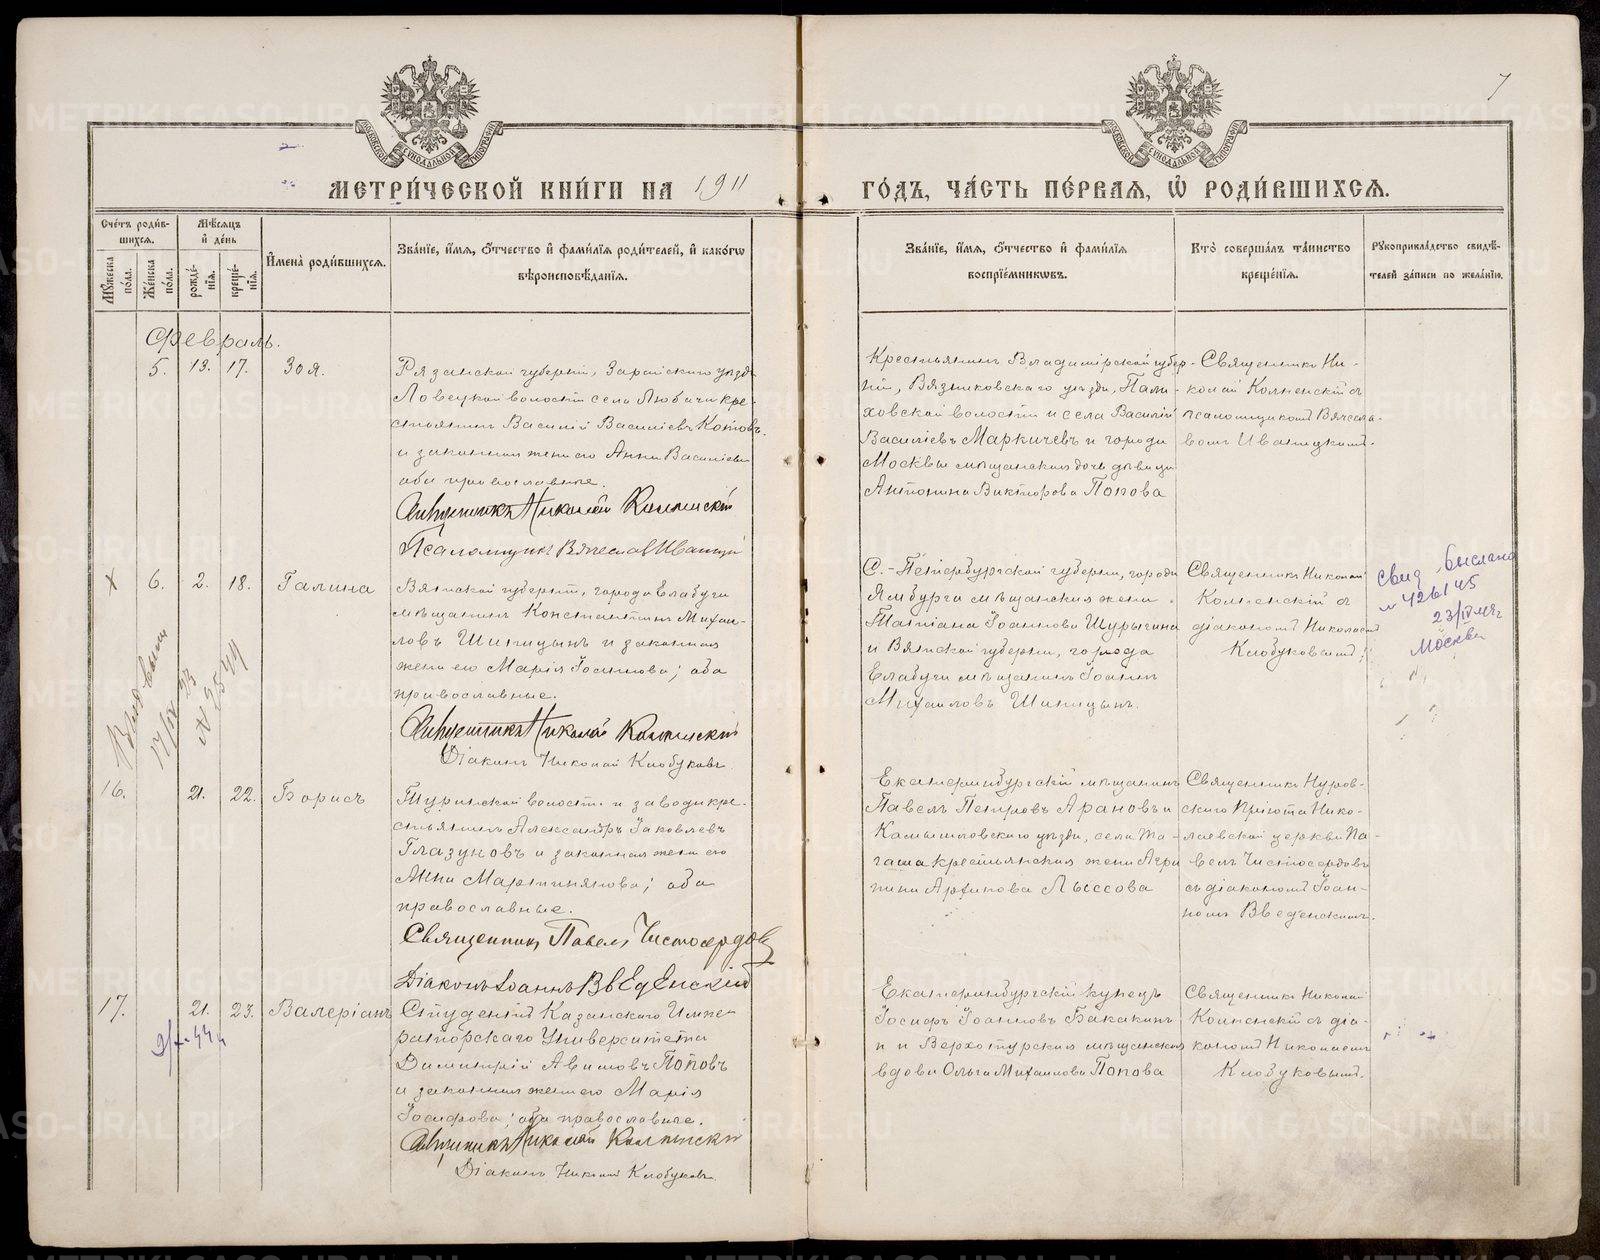 7
МЕТРИ́ЧЕСКОЙ КНИ́ГИ НА 1911 ГО́ДЪ, ЧА́СТЬ ПЕ́РВАѦ, Ѿ РОДИ́ВШИХСѦ.
МОСКОВСКОЙ СѴНОДАЛЬНОЙ ТИПОГРАФІИ
МОСКОВСКОЙ СѴНОДАЛЬНОЙ ТИПОГРАФІИ
Сче́тъ роди́в-
шихсѧ.
Мꙋ́жеска
по́ла.
Же́нска
по́ла.
Мѣ́сѧцъ
и҆ де́нь
рожде́-
нїѧ.
креще́-
нїѧ.
И҆мена̀ роди́вшихсѧ.
Зва́нїе, и҆́мѧ, ѻ҆́тчество и҆ фами́лїѧ роди́телей, и҆ како́гѡ
вѣроисповѣ́данїѧ.
Зва́нїе, и҆́мѧ, ѻ҆́тчество и҆ фами́лїѧ
воспрїе́мникѡвъ.
Кто̀ соверша́лъ та́инство
креще́нїѧ.
Рꙋкоприкла́дство свидѣ́-
телей за́писи по жела́нїю.
Февраль.
5. 13. 17. Зоя.
Рязанской губерніи, Зарайскаго уѣзда
Ловецкой волости села Любичи кре-
стьянинъ Василій Васильевъ Котовъ
и законная жена его Анна Васильева
оба православные.
Священникъ Николай Колпенскій
Псаломщикъ Вячеслав Иваницкій
Крестьянинъ Владимірской губер-
ніи, Вязниковскаго уѣзда, Пали-
ховской волости и села Василій
Васильевъ Маркичевъ и города
Москвы мѣщанская дочь дѣвица
Антонина Викторова Попова
Священникъ Ни-
колай Колпенскій съ
псаломщикомъ Вячесла-
вомъ Иваницкимъ.
х 6. 2. 18. Галина
Вятской губерніи, города Елабуги
мѣщанинъ Константинъ Михаи-
ловъ Шишицынъ и законная
жена его Марія Іоаннова; оба
православные.
Священникъ Николай Колпенскій
Діаконъ Николай Клобуковъ.
С.-Петербургской губерніи, города
Ямбурга мѣщанская жена
Татіана Іоаннова Шурыгина
и Вятской губерніи, города
Елабуги мѣщанинъ Іоаннъ
Михаиловъ Шишицынъ.
Священникъ Николай
Колпенскій съ
діакономъ Николаемъ
Клобуковымъ;
свид. выслано
№ 426145
23/IV
Москва
17/IX 33
№ 2549
16. 21. 22. Борисъ
Туринской волости и завода кре-
стьянинъ Александръ Іаковлевъ
Глазуновъ и законная жена его
Анна Мартиніянова; оба
православные.
Священник Павел Чистосердов
Діаконъ Іоаннъ Введенскій
Екатеринбургскій мѣщанинъ
Павелъ Петровъ Арановъ и
Камышловскаго уѣзда, села Та-
гаша крестьянская жена Агри
пина Архипова Лыссова
Священникъ Нуров-
скаго Пріюта Нико-
лаевской церкви Па-
велъ Чистосердовъ
съ діакономъ Іоан-
номъ Введенскимъ.
17. 21. 23. Валеріанъ
Студентъ Казанскаго Импе-
раторскаго Университета
Димитрій Авимовъ Поповъ
и законная жена его Марія
Іосифова; оба православные.
Священникъ Николай Колпенскій
Діаконъ Николай Клобуковъ.
Екатеринбургскій купецъ
Іосифъ Іоанновъ Бакакинъ
и Верхотурская мѣщанская
вдова Ольга Михаилова Попова
Священникъ Николай
Колпенскій съ діа-
кономъ Николаемъ
Клобуковымъ.
METRIKI.GASO-URAL.RU